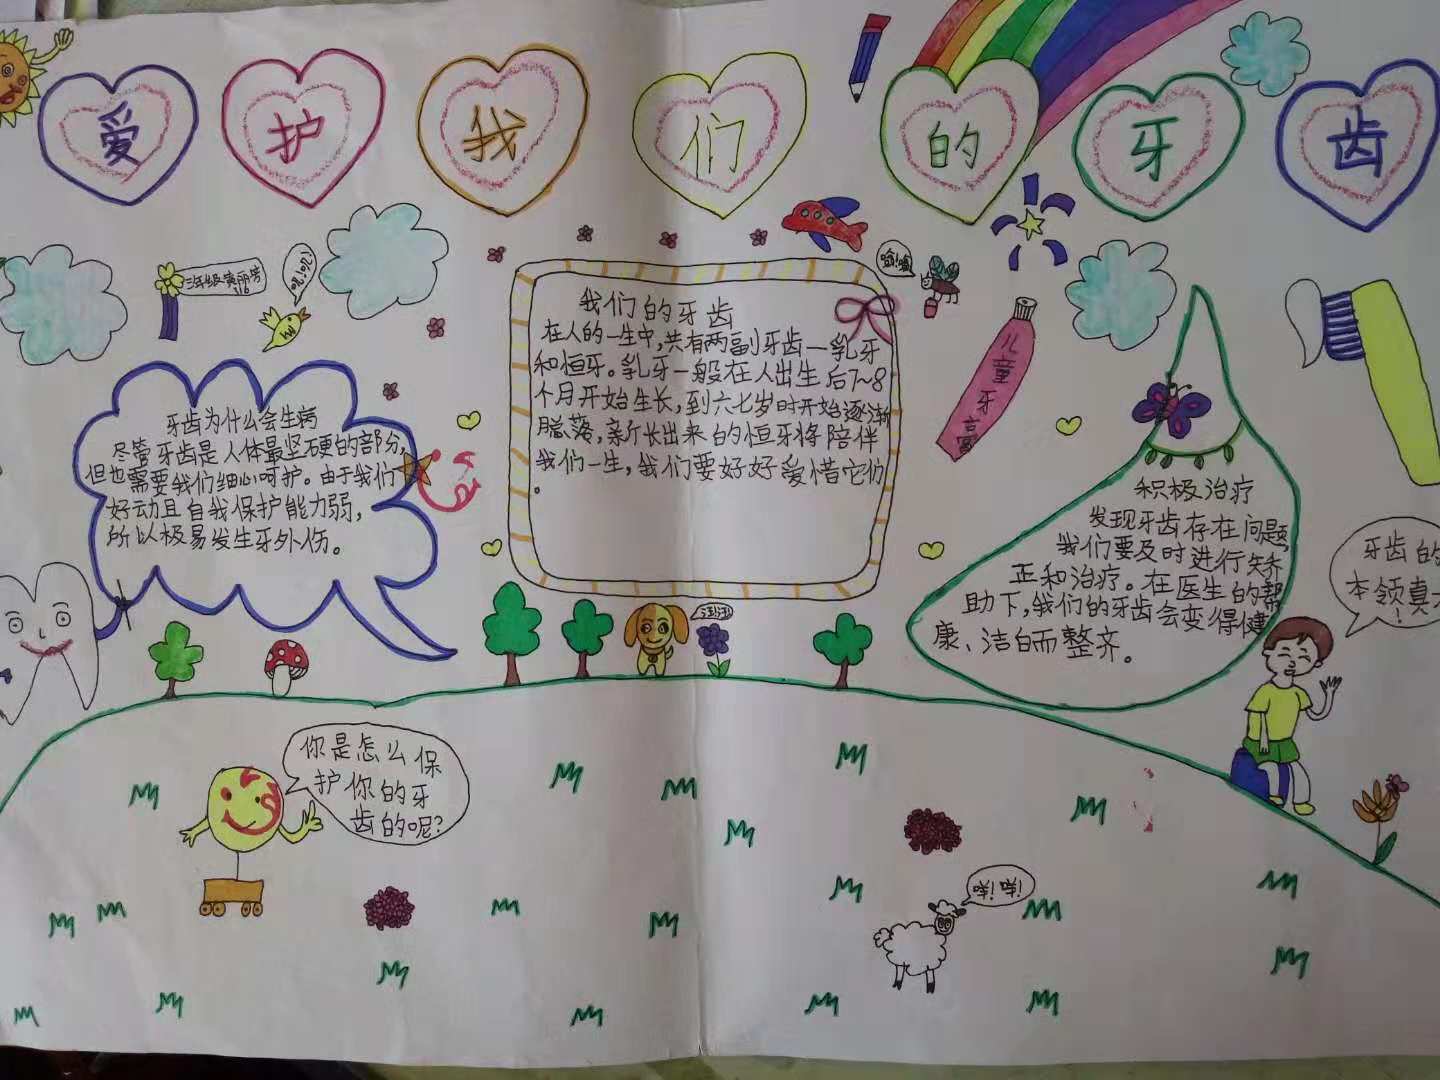 爱护我们的牙齿
三年级
牙齿为什么会生病
尽管牙齿是人体最坚硬的部分,
但也需要我们细心呵护。由于我们
好动且自我保护能力弱,
所以极易发生牙外伤。
我们的牙齿
在人的一生中,共有两副牙齿—乳牙
和恒牙。乳牙一般在人出生后7~8
个月开始生长,到六七岁时开始逐渐
脱落,新长出来的恒牙将陪伴
我们一生,我们要好好爱惜它们
。
嗡!嗡
儿童牙膏
积极治疗
发现牙齿存在问题,
我们要及时进行矫
正和治疗。在医生的帮
助下,我们的牙齿会变得健
康、洁白而整齐。
牙齿的
本领真
!
汪!汪!
你是怎么保
护你的牙
齿的呢?
咩!咩!